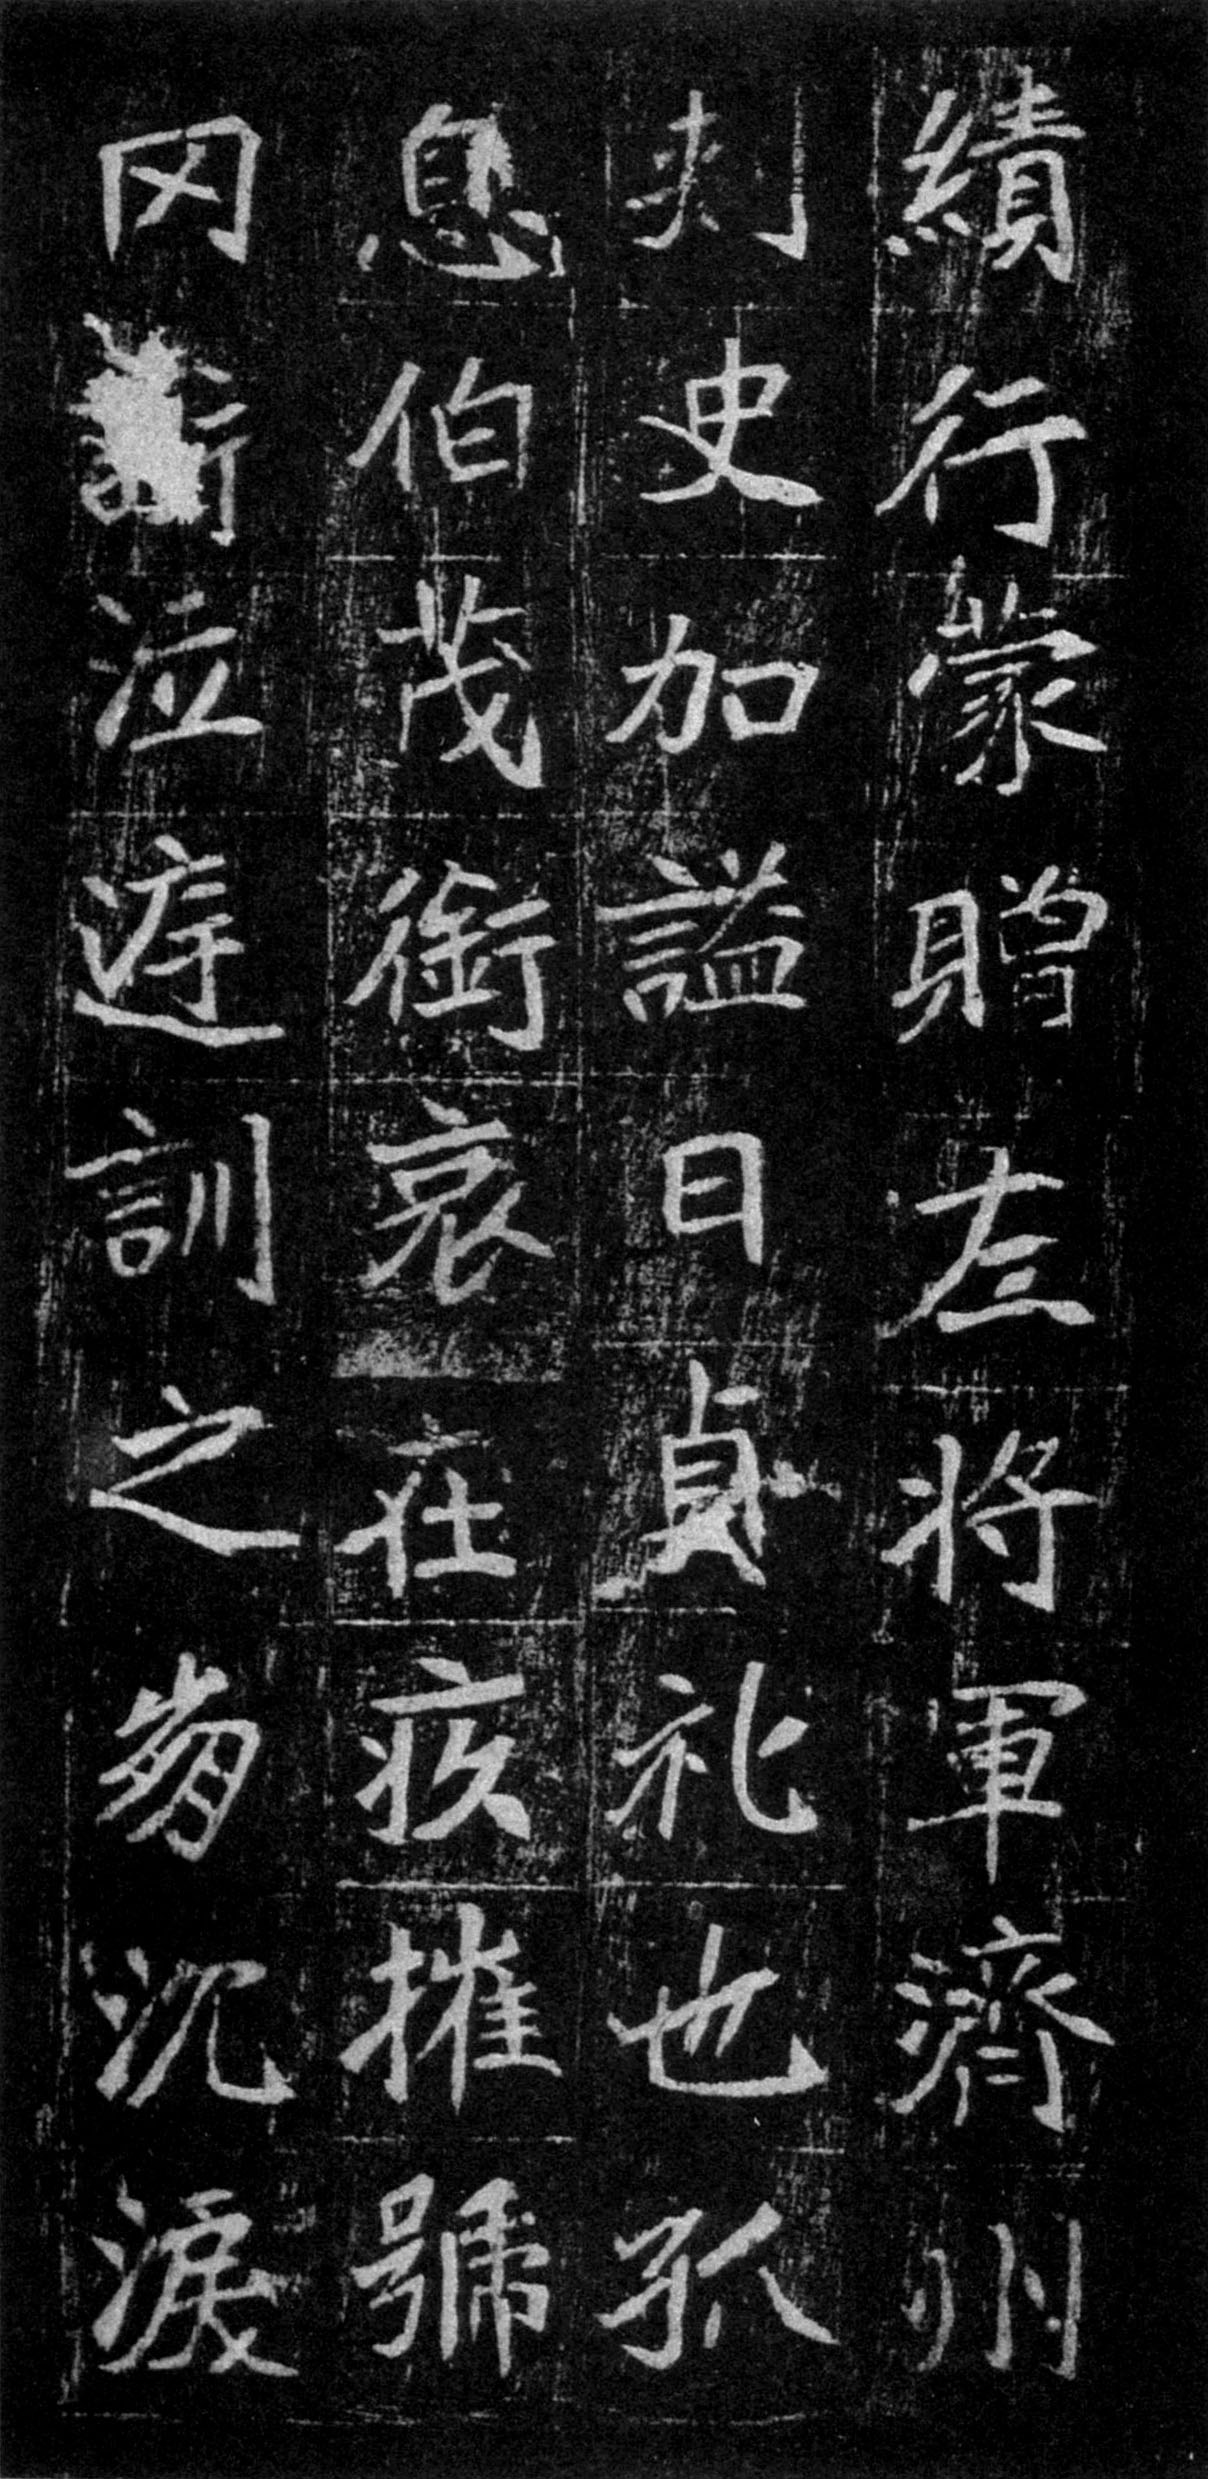 績行蒙贈左將軍濟州
刺史加謚曰貞礼也孤
息伯茂銜哀在疚摧號
罔泣遅訓之崩沉淚